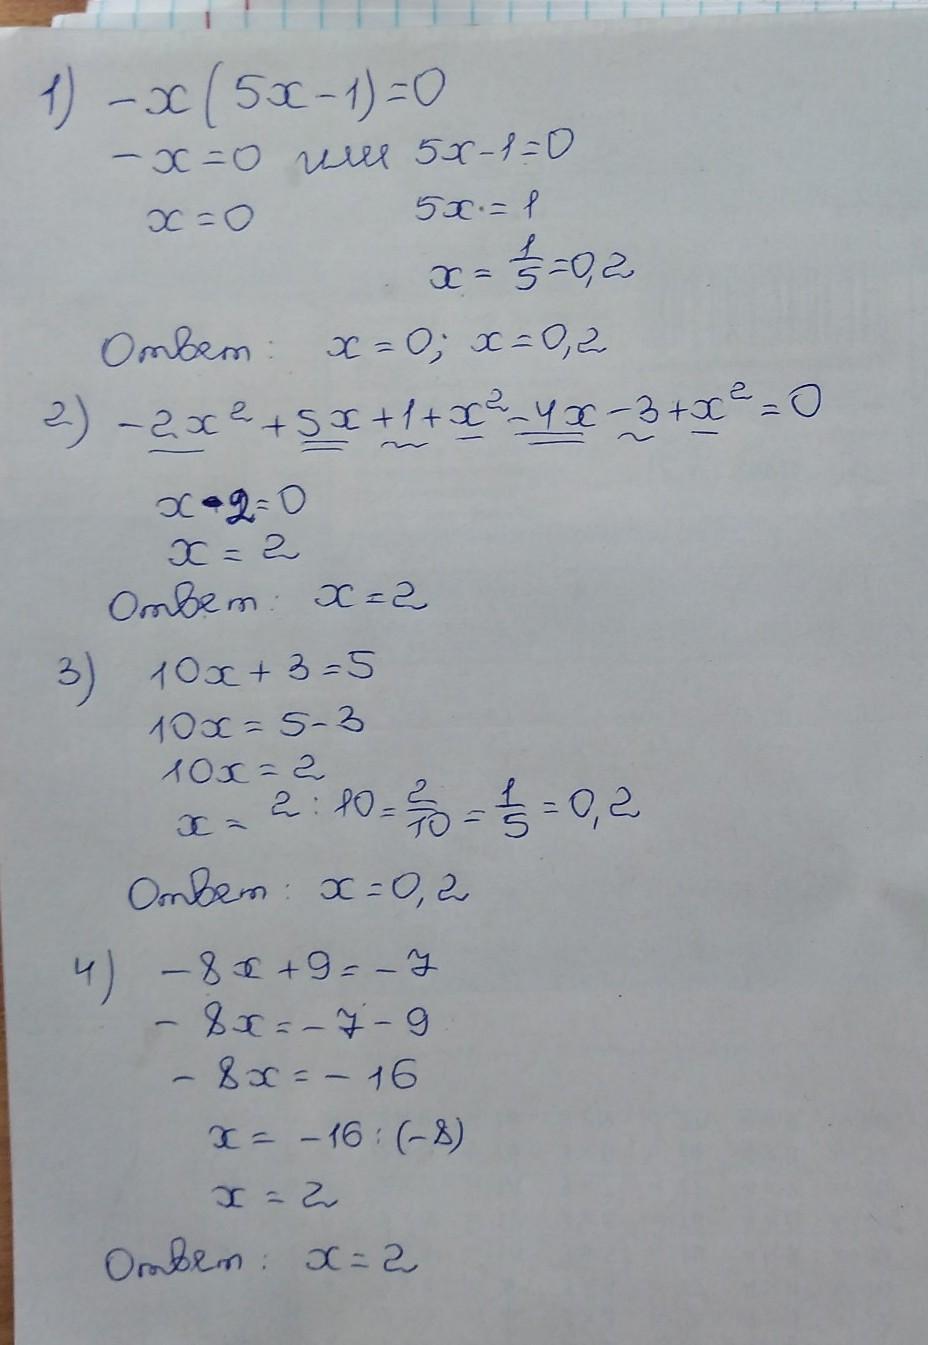 1) -x(5x-1)=0
-x=0 или 5x-1=0
x=0 5x=1
x = 1/5 =0,2
Ответ: x=0; x=0,2
2) -2x²+5x+1+x²-4x-3+x²=0
x-2=0
x=2
Ответ: x=2
3) 10x+3=5
10x=5-3
10x=2
x= 2:10= 2/10 = 1/5 =0,2
Ответ: x=0,2
4) -8x+9=-7
-8x=-7-9
-8x=-16
x= -16:(-8)
x=2
Ответ: x=2